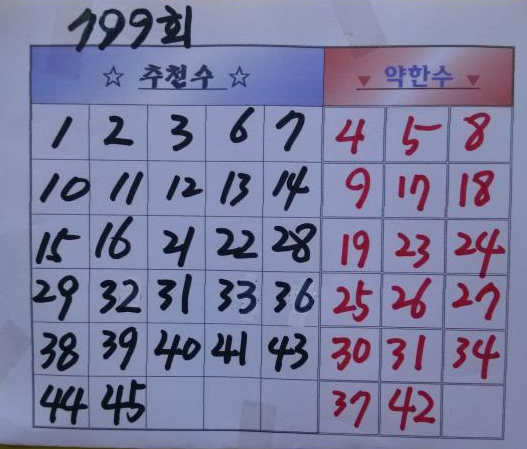 799회
☆ 추천수 ☆ ▼ 약한수 ▼
1 2 3 6 7 4 5 8
10 11 12 13 14 9 17 18
15 16 21 22 28 19 23 24
29 32 31 33 36 25 26 27
38 39 40 41 43 30 31 34
44 45 37 42